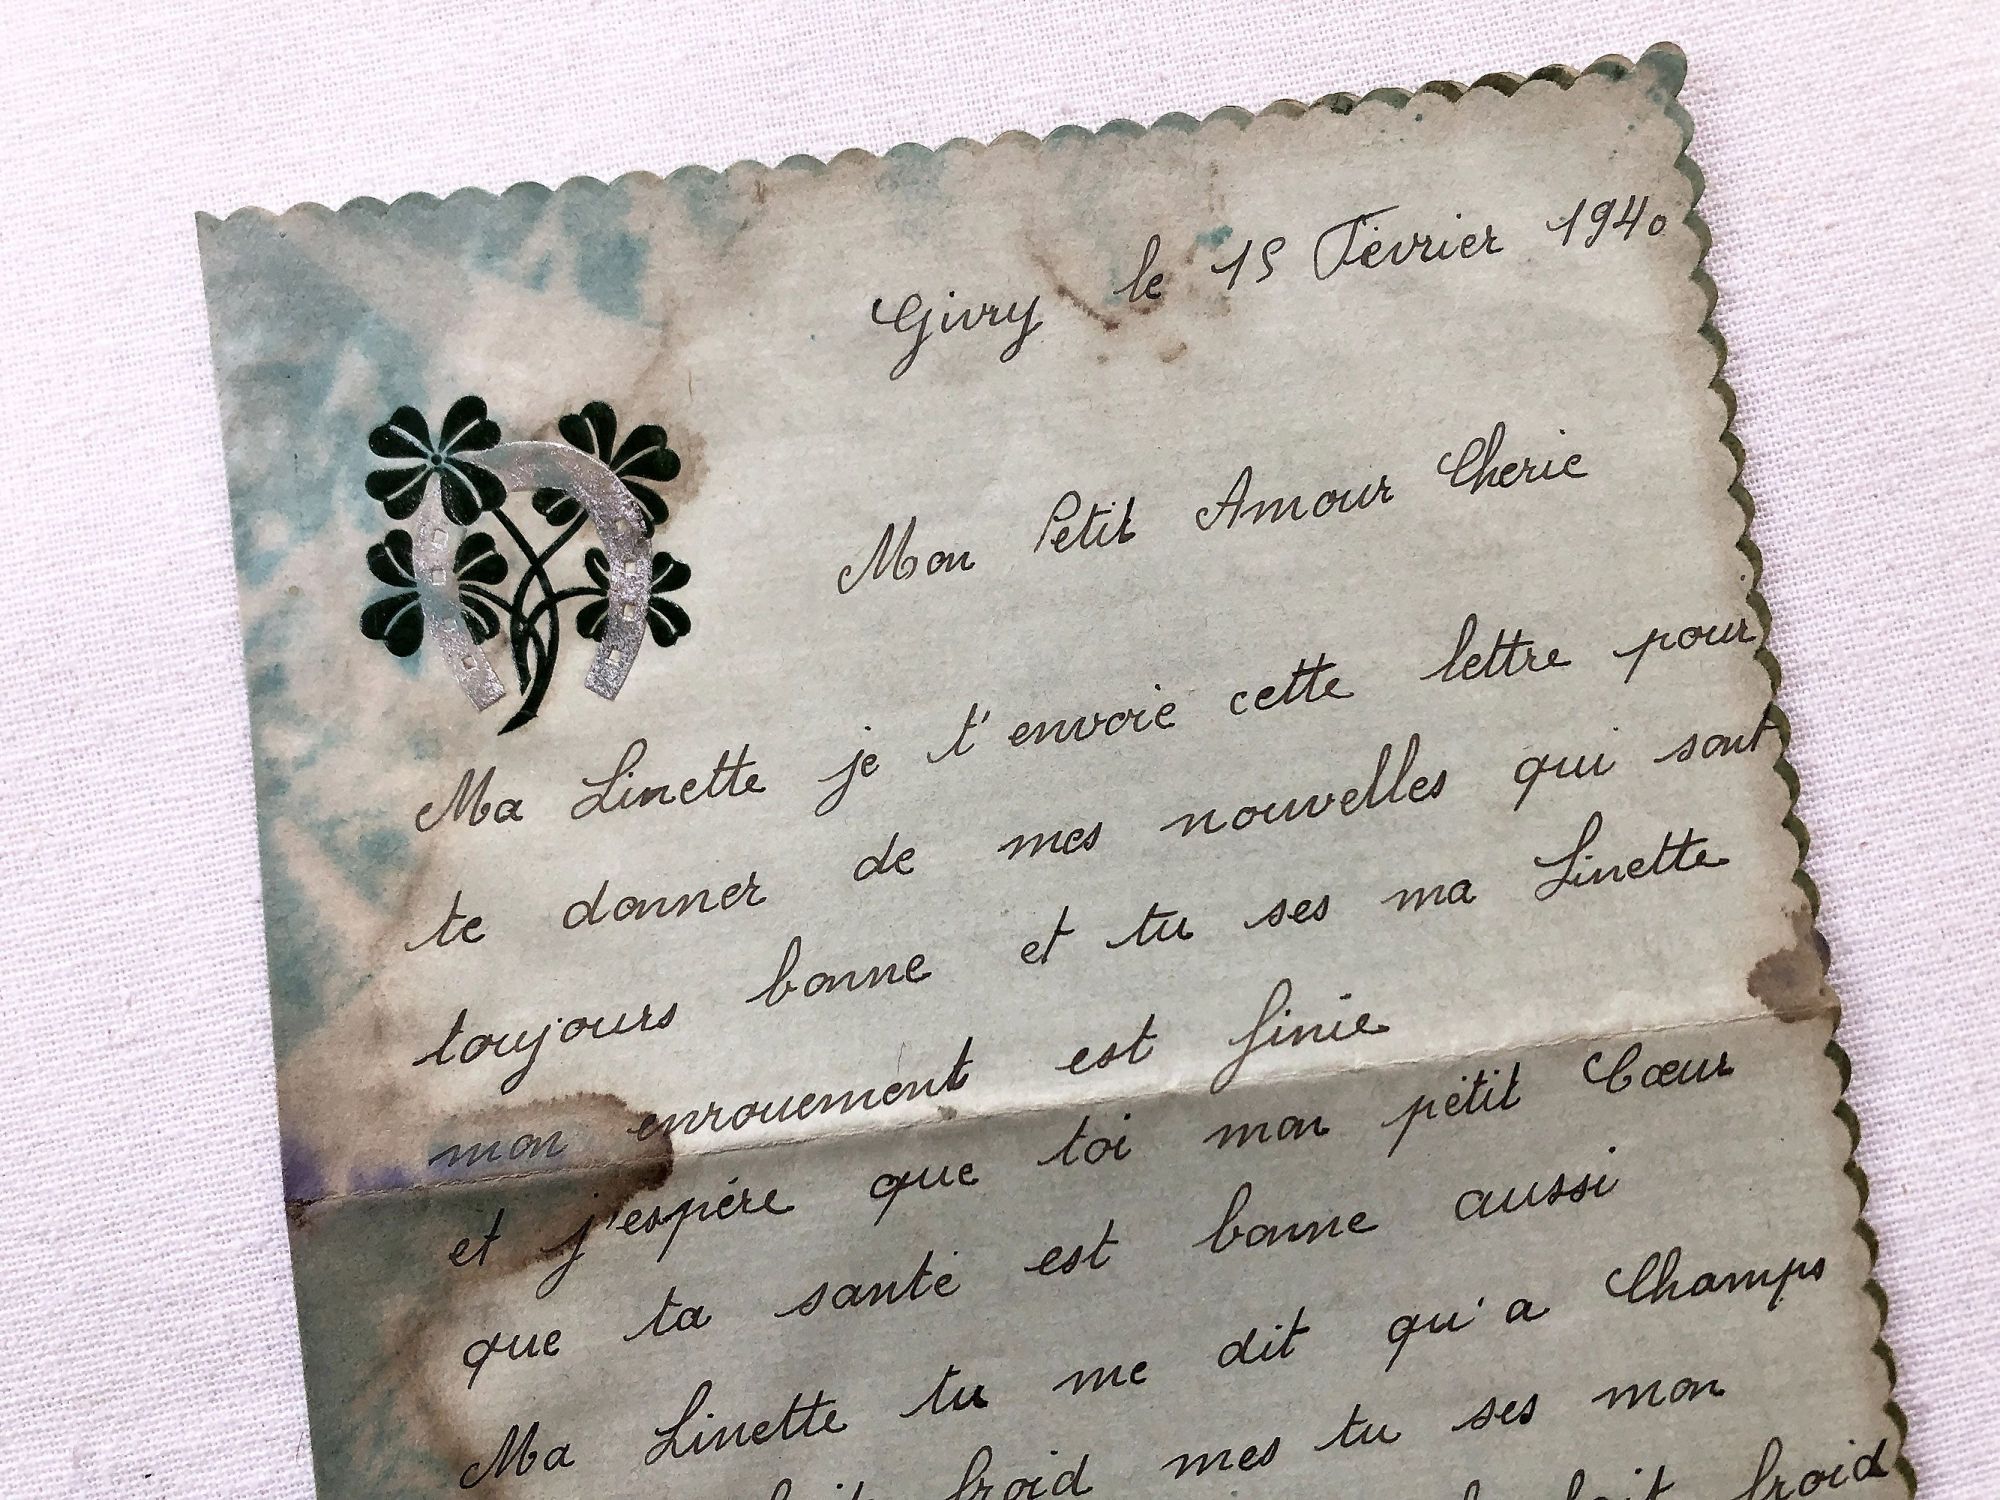 Givry le 15 Février 1940
Mon Petit Amour Cherie
Ma Linette je t'envoie cette lettre pour
te donner de mes nouvelles qui sont
toujours bonne et tu ses ma Linette
mon enrouement est finie
et j'espére que toi mon petit Cœur
que ta santé est bonne aussi
Ma Linette tu me dit qu'a Champs
froid mes tu ses mon
froid